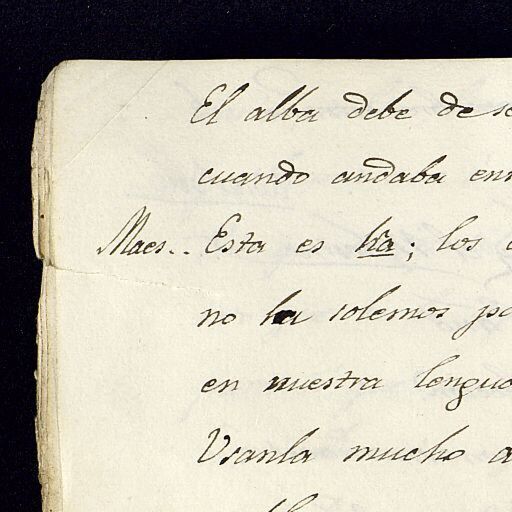 El alba debe de se
cuando andaba en
Maes.. Esta es hīa; los
no ha solemos po
en nuestra lengua
Usanla mucho a